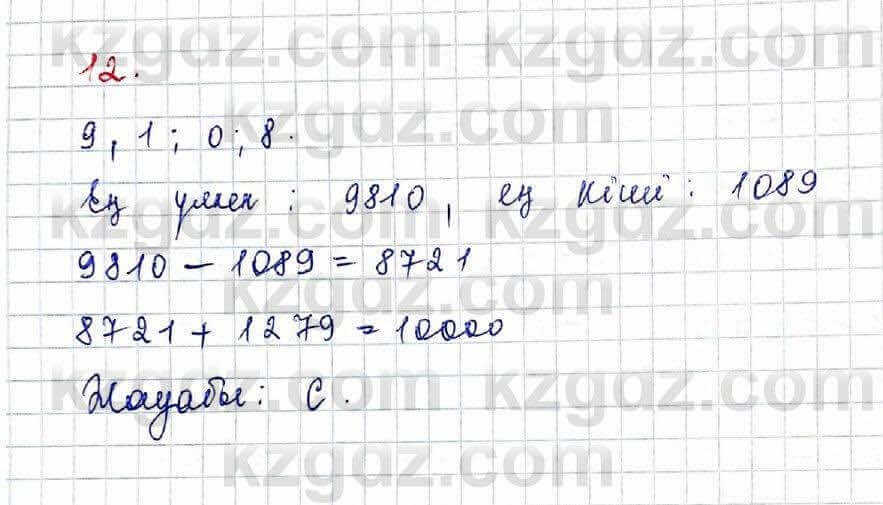 kzgdz.com kzgdz.com
12.
kzgdz.com
9, 1; 0; 8.
kzgdz.com kzgdz.com
Ең үлкен : 9810, ең кіші : 1089
kzgdz.com
9810 - 1089 = 8721
kzgdz.com kzgdz.com
8721 + 1279 = 10000
kzgdz.com kzgdz.com
Жауабы: C.
kzgdz.com